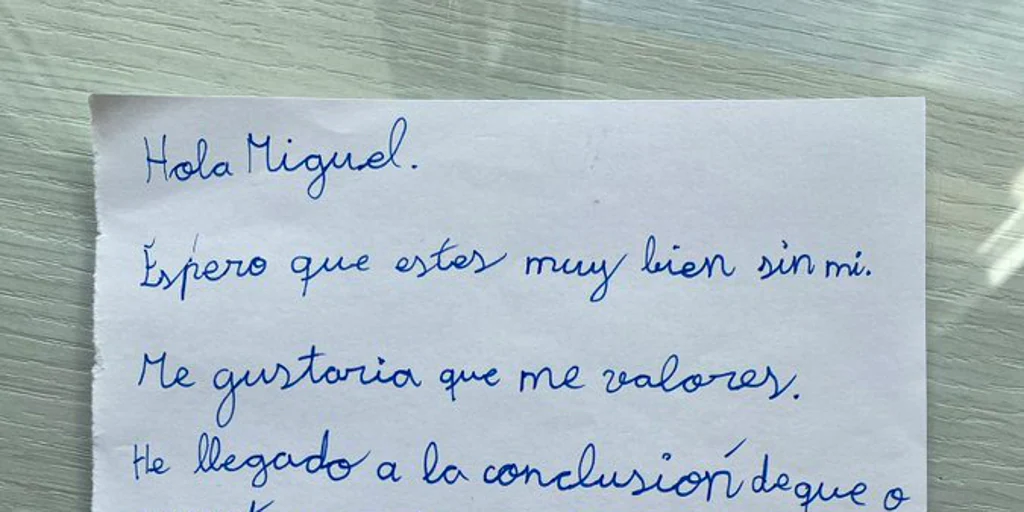 Hola Miguel.
Espero que estes muy bien sin mi.
Me gustaria que me valores.
He llegado a la conclusión de que o